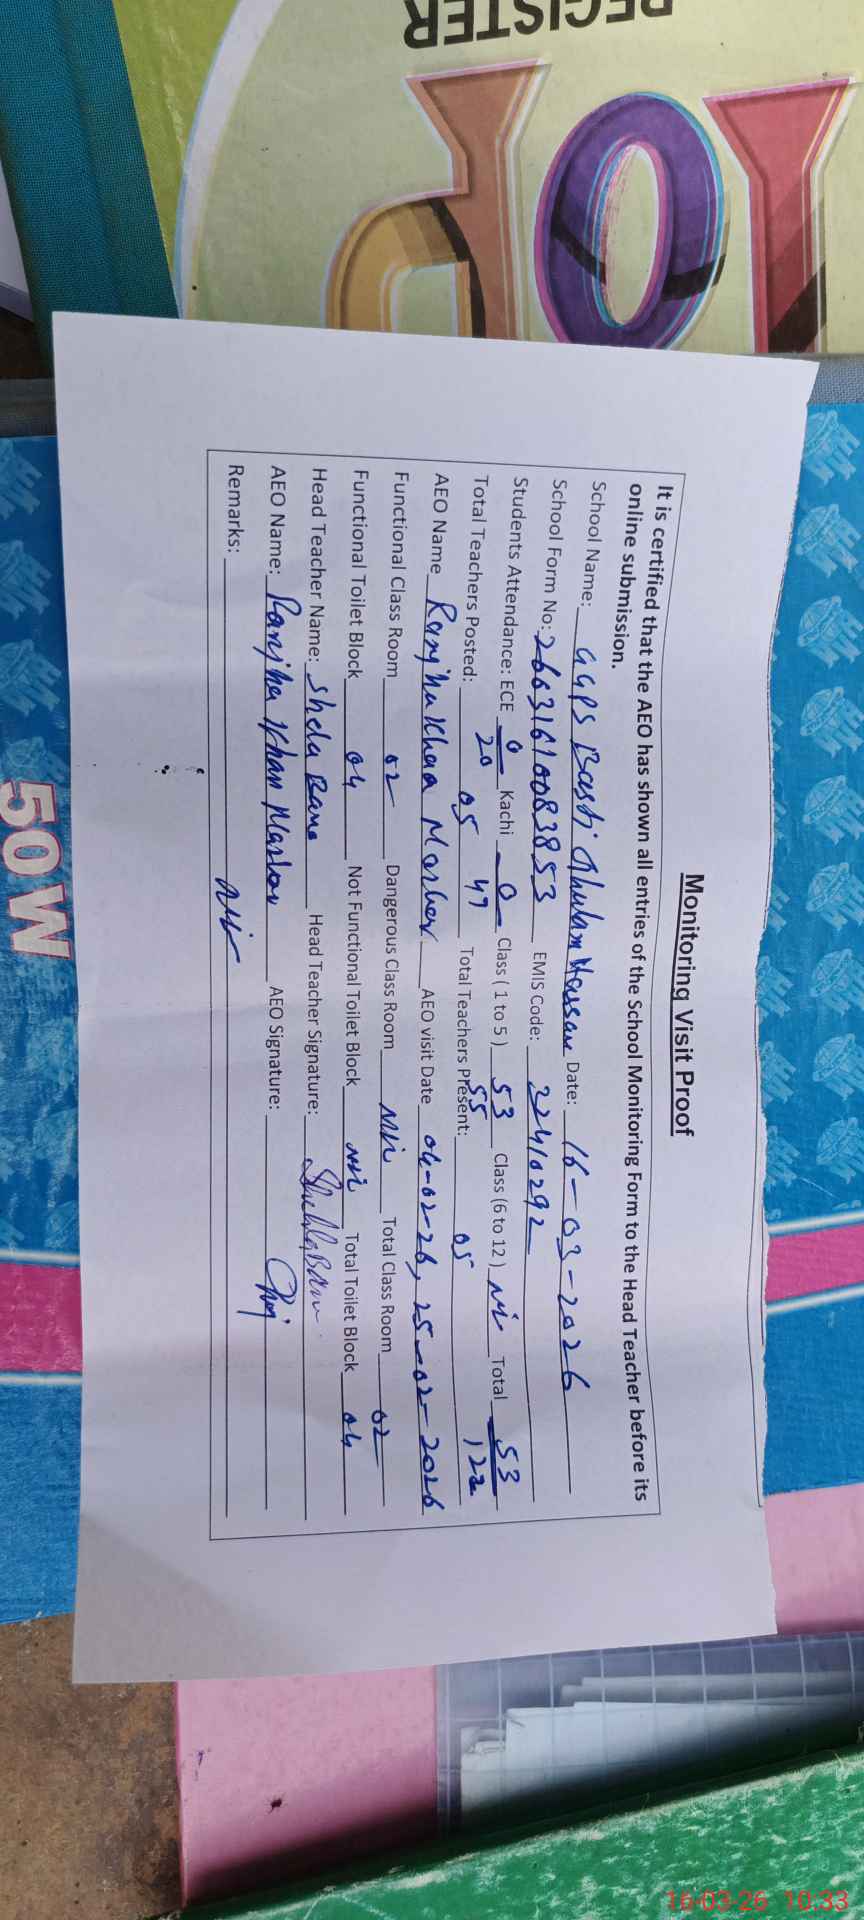 REGISTER
TOP
Monitoring Visit Proof
It is certified that the AEO has shown all entries of the School Monitoring Form to the Head Teacher before its
online submission.
School Name: GGPS Basti Ghulam Hassan Date: 16-03-2026
School Form No: 26631610083853 EMIS Code: 32410292
Students Attendance: ECE 0 Kachi 0 Class ( 1 to 5 ) 53 Class (6 to 12 ) Nil Total 53
20 49 55 122
Total Teachers Posted: 05 Total Teachers Present: 05
AEO Name Ranjha Khan AEO visit Date 04-02-26, 25-02-2026
Functional Class Room 02 Dangerous Class Room Nil Total Class Room 02
Functional Toilet Block 04 Not Functional Toilet Block Nil Total Toilet Block 04
Head Teacher Name: Bano Head Teacher Signature:
AEO Name: Ranjha Khan AEO Signature:
Remarks: Nil
50W
16-03-26 10:33